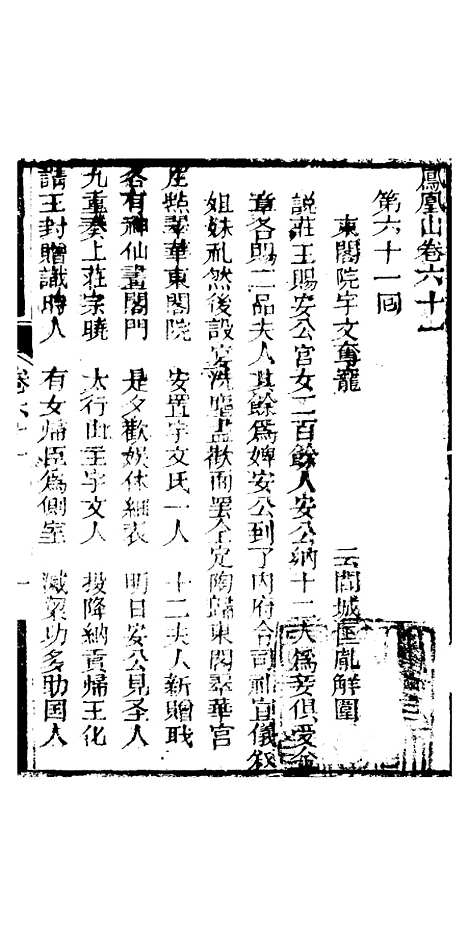 鳳凰山卷六十一
第六十一回
東閣院宇文奪寵 云間城匡胤解圍
説莊王賜安公宮女二百餘人安公納十二人為妾俱受金
章各賜二品夫人其餘為婢安公到了内府合司礼宜儀叙
姐妹礼然後設宴洗塵盡歡而罷全定陶歸東閣翠華宮
座無翠華東閣院 安置宇文氏一人 十二夫人新贈戝
各有神仙畫閣門 是夕歡娱休細表 明日安公見圣人
九重奏上莊宗曉 太行山上宇文人 投降納貢帰王化
請王封贈識時人 有女帰臣為側室 滅梁功多助国人
卷六十一 一